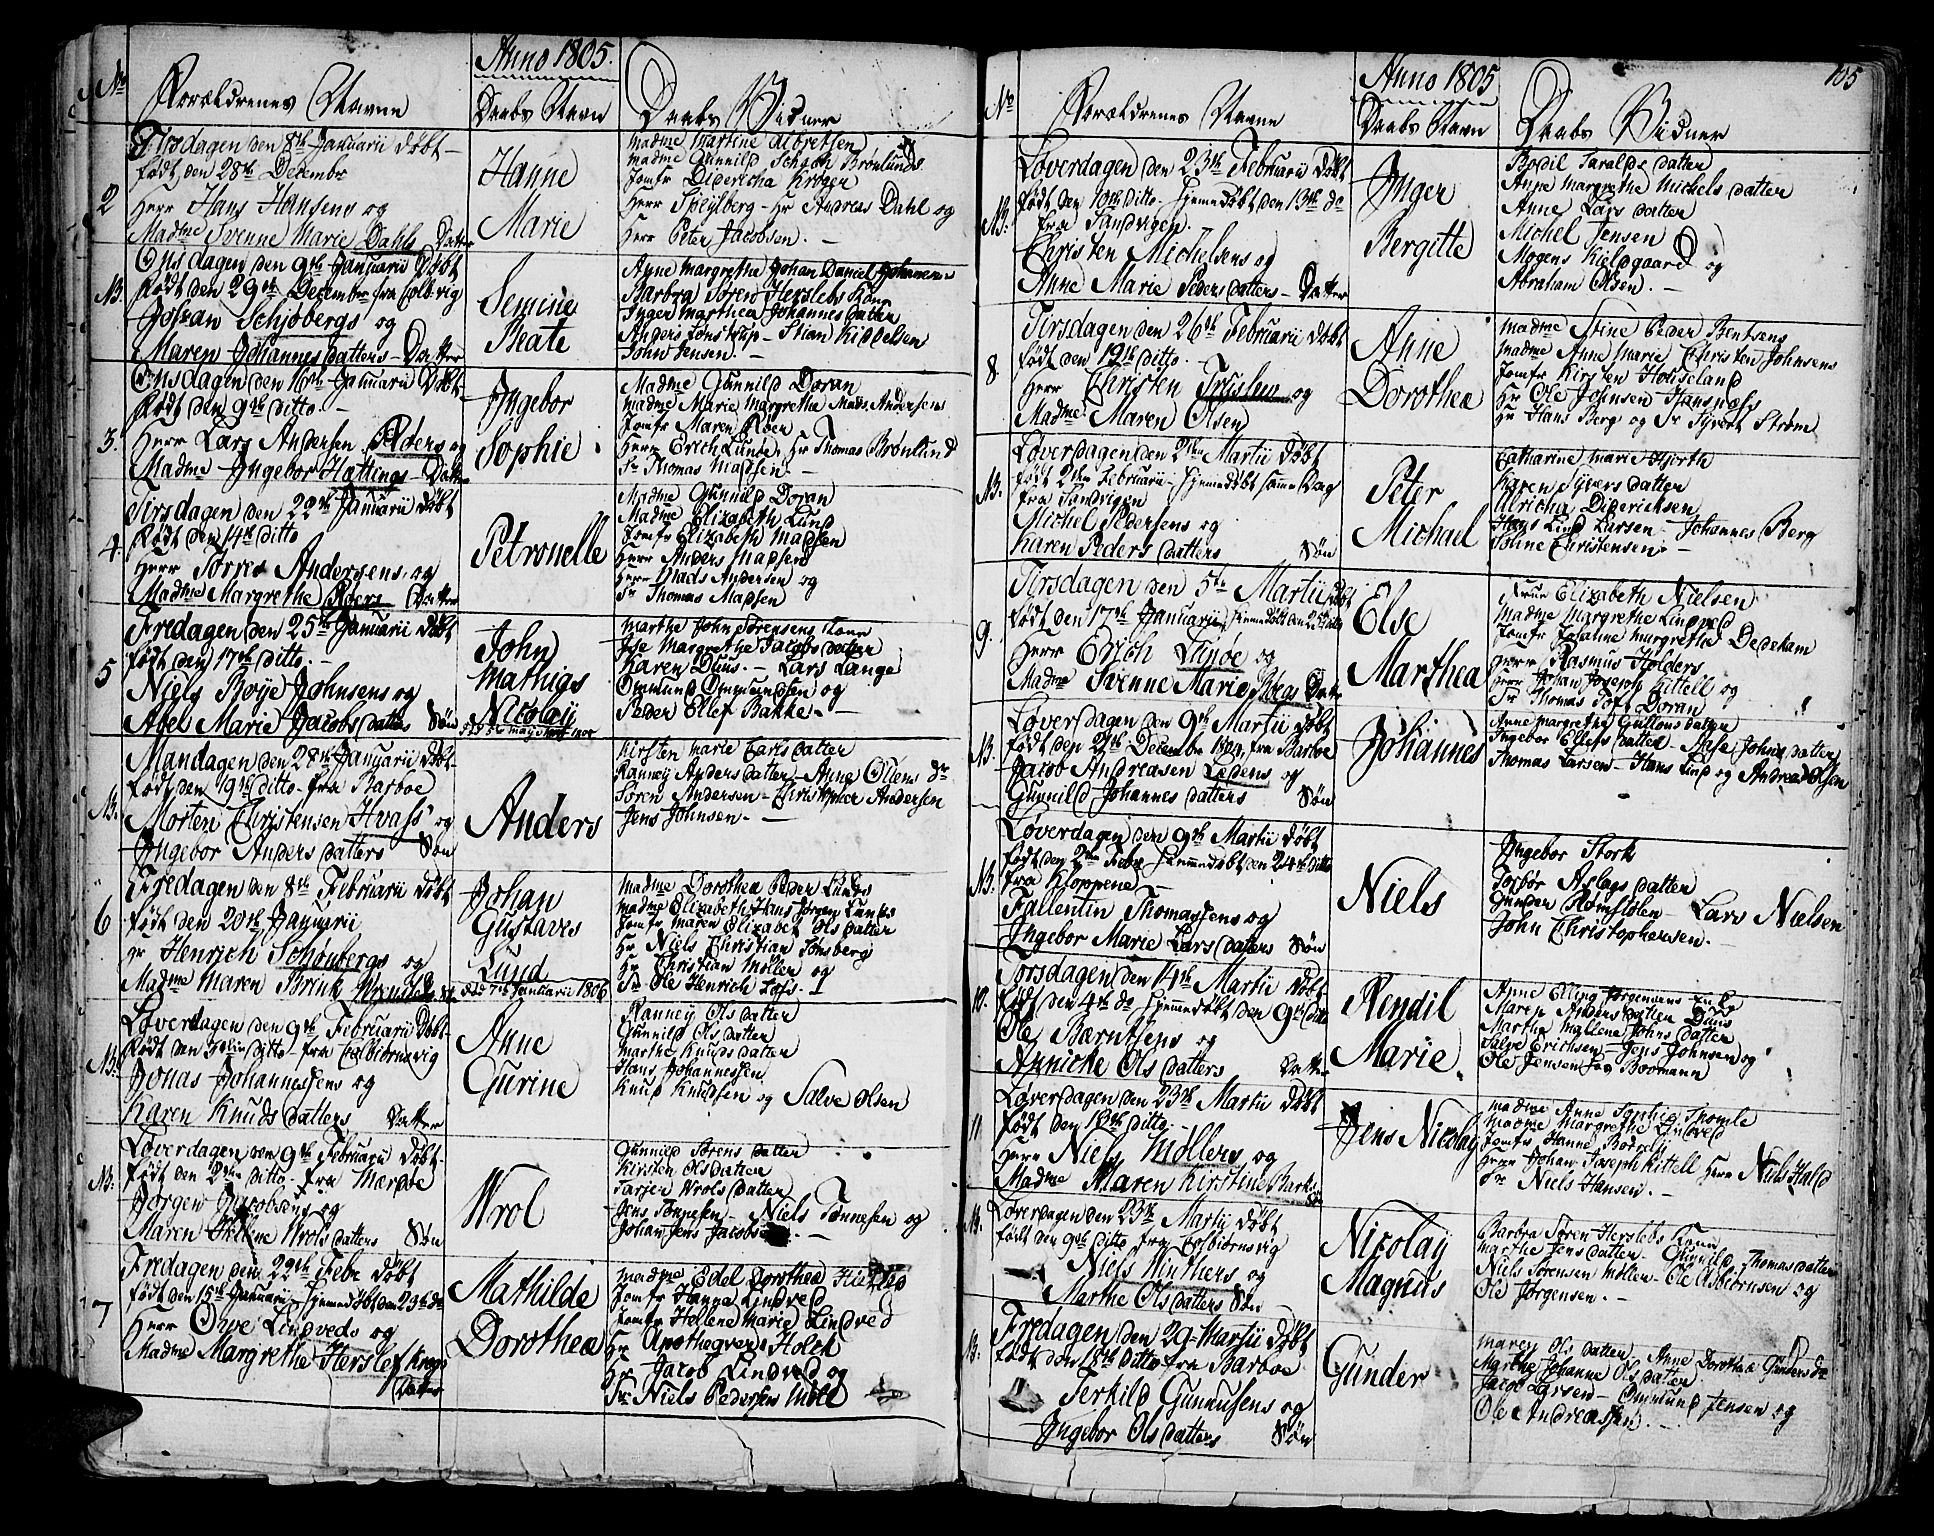 Anno 1805.
No
Forældrenes Navne
Daabs Navn
Daabs Vidner
Tirsdagen den 8de Januarii Døbt
født den 28de Decembr
2
Herr Hans Hansens og
Madme Svenne Marie Dahls Datter
Hanne
Marie
Madme Martine Albretsen
Madme Gunnild Schach Brønlunds
Jomfr Didericha Krøger
Herr Speilberg - Hr Andreas Dahl og
Herr Peter Jacobsen. -
Onsdagen den 9de Januarii Døbt
NB.
født den 29de December fra Colbvig
Johan Schjøbergs og
Maren Johannesdatters - Datter
Semine
Beate
Anne Margrethe Johan Daniel Johannesen
Barbra Søren Herslebs Kone
Inger Marthea Johannesdatter
Anders Lonstrup - Stian Kiddelsen
John Jensen. -
Onsdagen den 16de Januarii Døbt
født den 9de ditto. -
3.
Herr Lars Andersen Røers og
Madme Ingebor Hættings - Datter
Ingebor
Sophie
Madme Gunnild Doran
Madme Marie Margretha Mads Andersens
Jomfr Maren Røer
Herr Erich Lunde. Hr Thomas Brønlund
Sr Thomas Madsen. -
Tirsdagen den 22de Januarii Døbt
født den 14de ditto
4.
Herr Torres Andersens og
Madme Margrethe Røers Datter
Petronelle
Madme Gunnild Doran
Madme Elizabeth Lund
Jomfr Elizabeth Madsen
Herr Anders Madsen
Herr Mads Andersen og
Sr Thomas Madsen
Fredagen den 25de Januarii Døbt
født den 17de ditto. -
5
Niels Boye Johnsens og
Abel Marie Jacobsdatters Søn
John
Mathias
Nicolaij
Marthe John Sørensens Kone
Ide Margrethe Jacobsdatter
Karen Duus. - Lars Lange
Ommund Ommundsen og
Peder Ellef Bakke. -
Mandagen den 28de Januarii Døbt
født den 19de ditto - fra Barboe
NB.
Morten Christensen Hvass og
Ingebor Andersdatters Søn
Anders
Kirsten Marie Larsdatter
Ranney Andersdatter - Anne Olsens dr
Søren Andersen - Christopher Andersen
Jens Johnsen. -
Fredagen den 8de Februarii Døbt
født den 20de Januarii
6
Hr Henrich Schønbergs og
Madme Maren Brink Wensells Søn
Johan
Gustaves
Lund
død 7de Januarii 1806
Madme Dorothea Peder Lunds
Madme Elizabeth Hans Jørgen Lunds
Jomfr Maren Elizabet Olsdatter
Hr Niels Christian Tønsberg
Hr Christian Møller og
Sr Ole Henrich Lass.
Løverdagen den 9de Februarii Døbt
NB.
født den 3die ditto - fra Colbiørnsvig
Jonas Johannessens og
Karen Knudsdatters Datter
Anne
Gurine
Ranney Olsdatter
Gunnild Olsdatter
Marthe Knudsdatter
Hans Johannessen
Knud Knudsen og Salve Olsen
Løverdagen den 9de Februarii Døbt
NB.
født den 2den ditto - fra Mærdøe
Jørgen Jacobsens og
Maren Hellene Wrolsdatters Søn
Wrol
Gunnild Sørensdatter
Kirsten Olsdatter
Tarjer Wrolsdatter
Jens Tønnesen - Niels Tønnesen og
Johan Jens Jacobsen. -
Fredagen den 22de Febr Døbt
født den 15de Januarii hjemmedøbt den 23de do
7
Herr Owe Lindveds og
Madme Margrethe Herslef Krogs
Datter
Mathilde
Dorothea
Madme Edel Dorothea Herslef
Jomfr Hanna Lindved
Jomfr Hellene Marie Lindved
Hr Apotheqver Holck
Hr Jacob Lindved og
Sr Niels Pedersen Uhld
Anno 1805
105
No
Forældrenes Navne
Daabs Navn
Daabs Vidner
Løverdagen den 23de Februarii Døbt
født den 10de ditto - hjemmedøbt den 13de do
NB.
fra Sandvigen.
Christen Michelsens og
Anne Marie Pedersdatters - Datter
Inger
Bergitte
Bodil Taraldsdatter
Anne Margrethe Michelsdatter
Anne Larsdatter
Michel Jensen
Mogens Kieldgaard og
Abraham Olsen. -
Tirsdagen den 26de Februarii Døbt
født den 12te ditto. -
8
Herr Christen Truslew og
Madme Maren Olsen
Anne
Dorothea
Madme Stine Peder Bentsens
Madme Anne Marie Christen Johnsens
Jomfr Kirsten Houseland
Hr Ole Johnsen Hansnæs
Hr Hans Berg og Sr Syvert Strøm
Løverdagen den 2den Martii Døbt
født 2den Februarii - hjemmedøbt samme Dag
NB.
fra Sandvigen
Michel Pedersens og
Karen Pedersdatters Søn
Peter
Michael
Catharine Marie Hjorth
Karen Siversdatter
Ulricha Dideriksen
Hans Lind Larsen - Johannes Berg
Tønne Christensen. -
Tirsdagen den 5te Martii Døbt
født den 17de Januarii hjemmedøbt den 25de
9.
Herr Erich Lunøe og
Madme Svenne Marie Bergs Datter
Else
Marthea
Frue Elizabeth Nielsen
Madme Margrethe Lindved
Jomfr Johanne Margrethe Dedekam
Herr Rasmus Holders
Herr Johan Joseph Kittell og
Sr Thomas Toft Doran
Løversdagen den 9de Martii Døbt
NB.
født den 24de Decembr 1804 fra Barboe
Jacob Andreasen Ledens og
Gunnild Johannesdatters Søn
Johannes
Anne Margretha Guttormsdatter
Ingebor Ellefsdatter - Aase Johnsdatter
Thomas Larsen - Hans Lind og Andreas Olsen
Løverdagen den 9de Martii Døbt
født den 2den Febr - hjemmedøbt den 24de ditto
NB.
fra Kloppene -
Fallentin Thomassens og
Ingebor Marie Larsdatters Søn
Niels
Ingebor Stork
Torbor Aslagsdatter
Gunder Holmstølen - Lars Nielsen
John Christophersen. -
Torsdagen den 14de Martii Døbt
10.
født den 4de do hjemmedøbt den 9de ditto
Ole Bærntsens og
Annicke Olsdatters Datter
Rendil
Marie.
Anne Elling Jørgensens Enke
Maren Andersdatter Duus
Marthe Mallene Johnsdatter
Salve Erichsen - Jens Johnsen og
Ole Jensen Boomann
Løversdagen den 23de Martii Døbt
11.
født den 13de ditto. -
Herr Niels Møllers og
Madme Maren Kirstine Barks
Søn
Jens Nicolay
Madme Anne Sophie Thomle
Madme Margrethe Lindved
Jomfr Hanne Boderly
Herr Johan Joseph Kittell Herr Niels Hald
Sr Niels Hansen. -
NB.
Løverdagen den 23de Martii Døbt
født den 9de ditto fra Colbiørnsvig
Niels Winthers og
Marthe Olsdatters Søn
Nicolaÿ
Magnus
Barbra Søren Herslebs Kone
Marthe Jensdatter - Gunnild Thomasdatter
Niels Sørensen Møller - Ole Asbiørnsen og
Ole Jørgensen. -
NB.
Fredagen den 29de Martii Døbt
født den 18de ditto fra Barboe
Terkild Gunnusens og
Ingebor Olsdatters Søn
Gunder
Maren Olsdatter. Anne Dorothea Gundersdr
Marthe Johanne Olsdatter
Jacob Larsen - Ommund Jensen og
Ole Andreassen. -